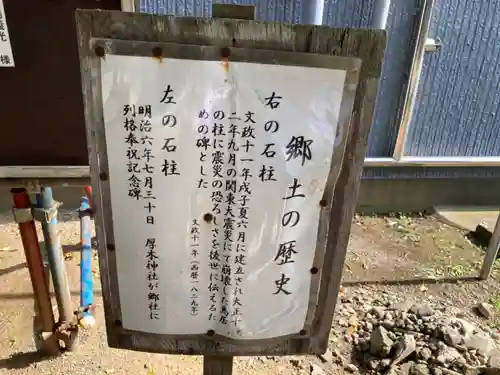 郷土の歴史
右の石柱
文政十一年戊子夏六月に建立され大正十
二年九月の関東大震災にて崩壊した鳥居
の柱に震災の恐ろしさを後世に伝えるた
めの碑とした
文政十一年(西暦一八二九年)
左の石柱
明治六年七月三十日 厚木神社が郷社に
列格奉祝記念碑